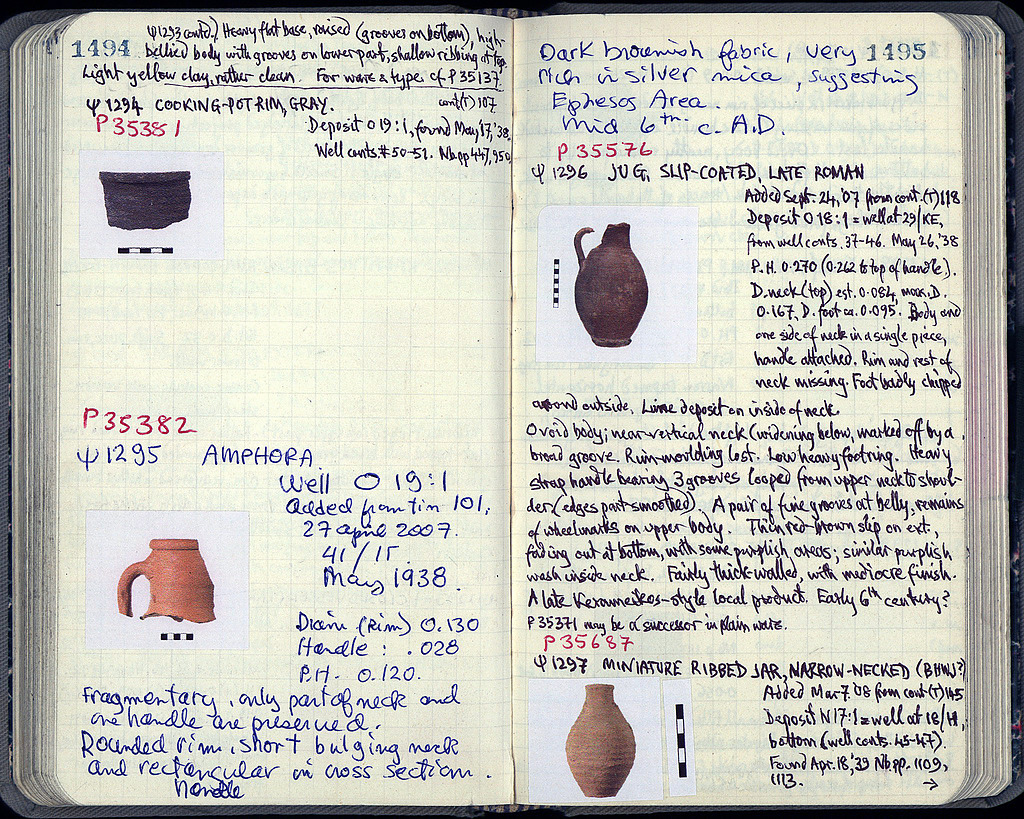 1494
Ψ1293 contd.) Heavy flat base, raised (grooves on bottom), high-
bellied body with grooves on lower part, shallow ribbing at top.
Light yellow clay, rather clean. For ware & type cf P 35137
Ψ 1294 COOKING-POT RIM, GRAY. cont(T) 107.
P 35381
Deposit O 19:1, found May, 17, '38.
Well conts. #50-51. Nb pp 447, 950
P 35382
Ψ 1295 AMPHORA.
Well O 19:1
added from tin 101,
27 april 2007.
41 / ΙΓ
May 1938.
Diam (rim) 0.130
Handle : .028
P.H. 0.120.
Fragmentary, only part of neck and
one handle are preserved.
Rounded rim, short bulging neck
and rectangular in cross section.
handle
Dark brownish fabric, very 1495
rich in silver mica, suggesting
Ephesos Area.
Mid 6th c. A.D.
P 35576
Ψ 1296 JUG, SLIP-COATED, LATE ROMAN
Added Sept. 24, '07 from cont. (T) 118
Deposit O 18:1 = well at 29/ΚΕ,
from well conts. 37-46. May 26, '38
P.H. 0.270 (0.262 to top of handle).
D. neck (top) est. 0.082, max. D.
0.167, D. foot ca. 0.095. Body and
one side of neck in a single piece,
handle attached. Rim and rest of
neck missing. Foot badly chipped
around outside. Lime deposit on inside of neck.
Ovoid body; near-vertical neck (widening below, marked off by a
broad groove. Rim-moulding lost. Low heavy footring. Heavy
strap handle bearing 3 grooves looped from upper neck to shoul-
der (edges part smoothed). A pair of fine grooves at belly, remains
of wheelmarks on upper body. Thin red-brown slip on ext.,
fading out at bottom, with some purplish areas; similar purplish
wash inside neck. Fairly thick-walled, with mediocre finish.
A late Kerameikos-style local product. Early 6th century?
P 35371 may be a successor in plain ware.
P 35687
Ψ 1297 MINIATURE RIBBED JAR, NARROW-NECKED (BHWJ?)
Added Mar 7 '08 from cont (T) 145
Deposit N 17:1 = well at 18/Η,
bottom (well conts. 45-47).
Found Apr. 18, '39 Nb pp. 1109,
1113. →